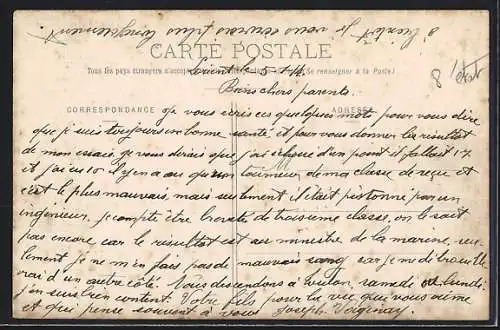 à bientôt je vous écrirais plus longuement.
CARTE POSTALE
Tous les pays étrangers n'acceptent (Se renseigner à la Poste)
Lorient le 5 - 14
Biens chers parents.
CORRESPONDANCE ADRESSE
Je vous écris ces quelques mots pour vous dire
que je suis toujours en bonne santé, et pour vous donner le résultat
de mon essaie, je vous dirais que j'ai d'un point il fallait 17
et j'ai eu 16 il y en a eu qu'un de ma classe de reçu et
c'est le plus mauvais, mais seulement il était pistonné par un
ingénieur, je compte être breveté de troisième classe, on le sait
pas encore car le résultat est au ministre de la marine, seu-
lement je ne m'en fais pas de mauvais sang car je me débrouille
rai d'un autre côté. Nous descendons à Toulon, samedi ou lundi
j'en suis bien content. Votre fils pour la vie qui vous aime
et qui pense souvent à vous Joseph